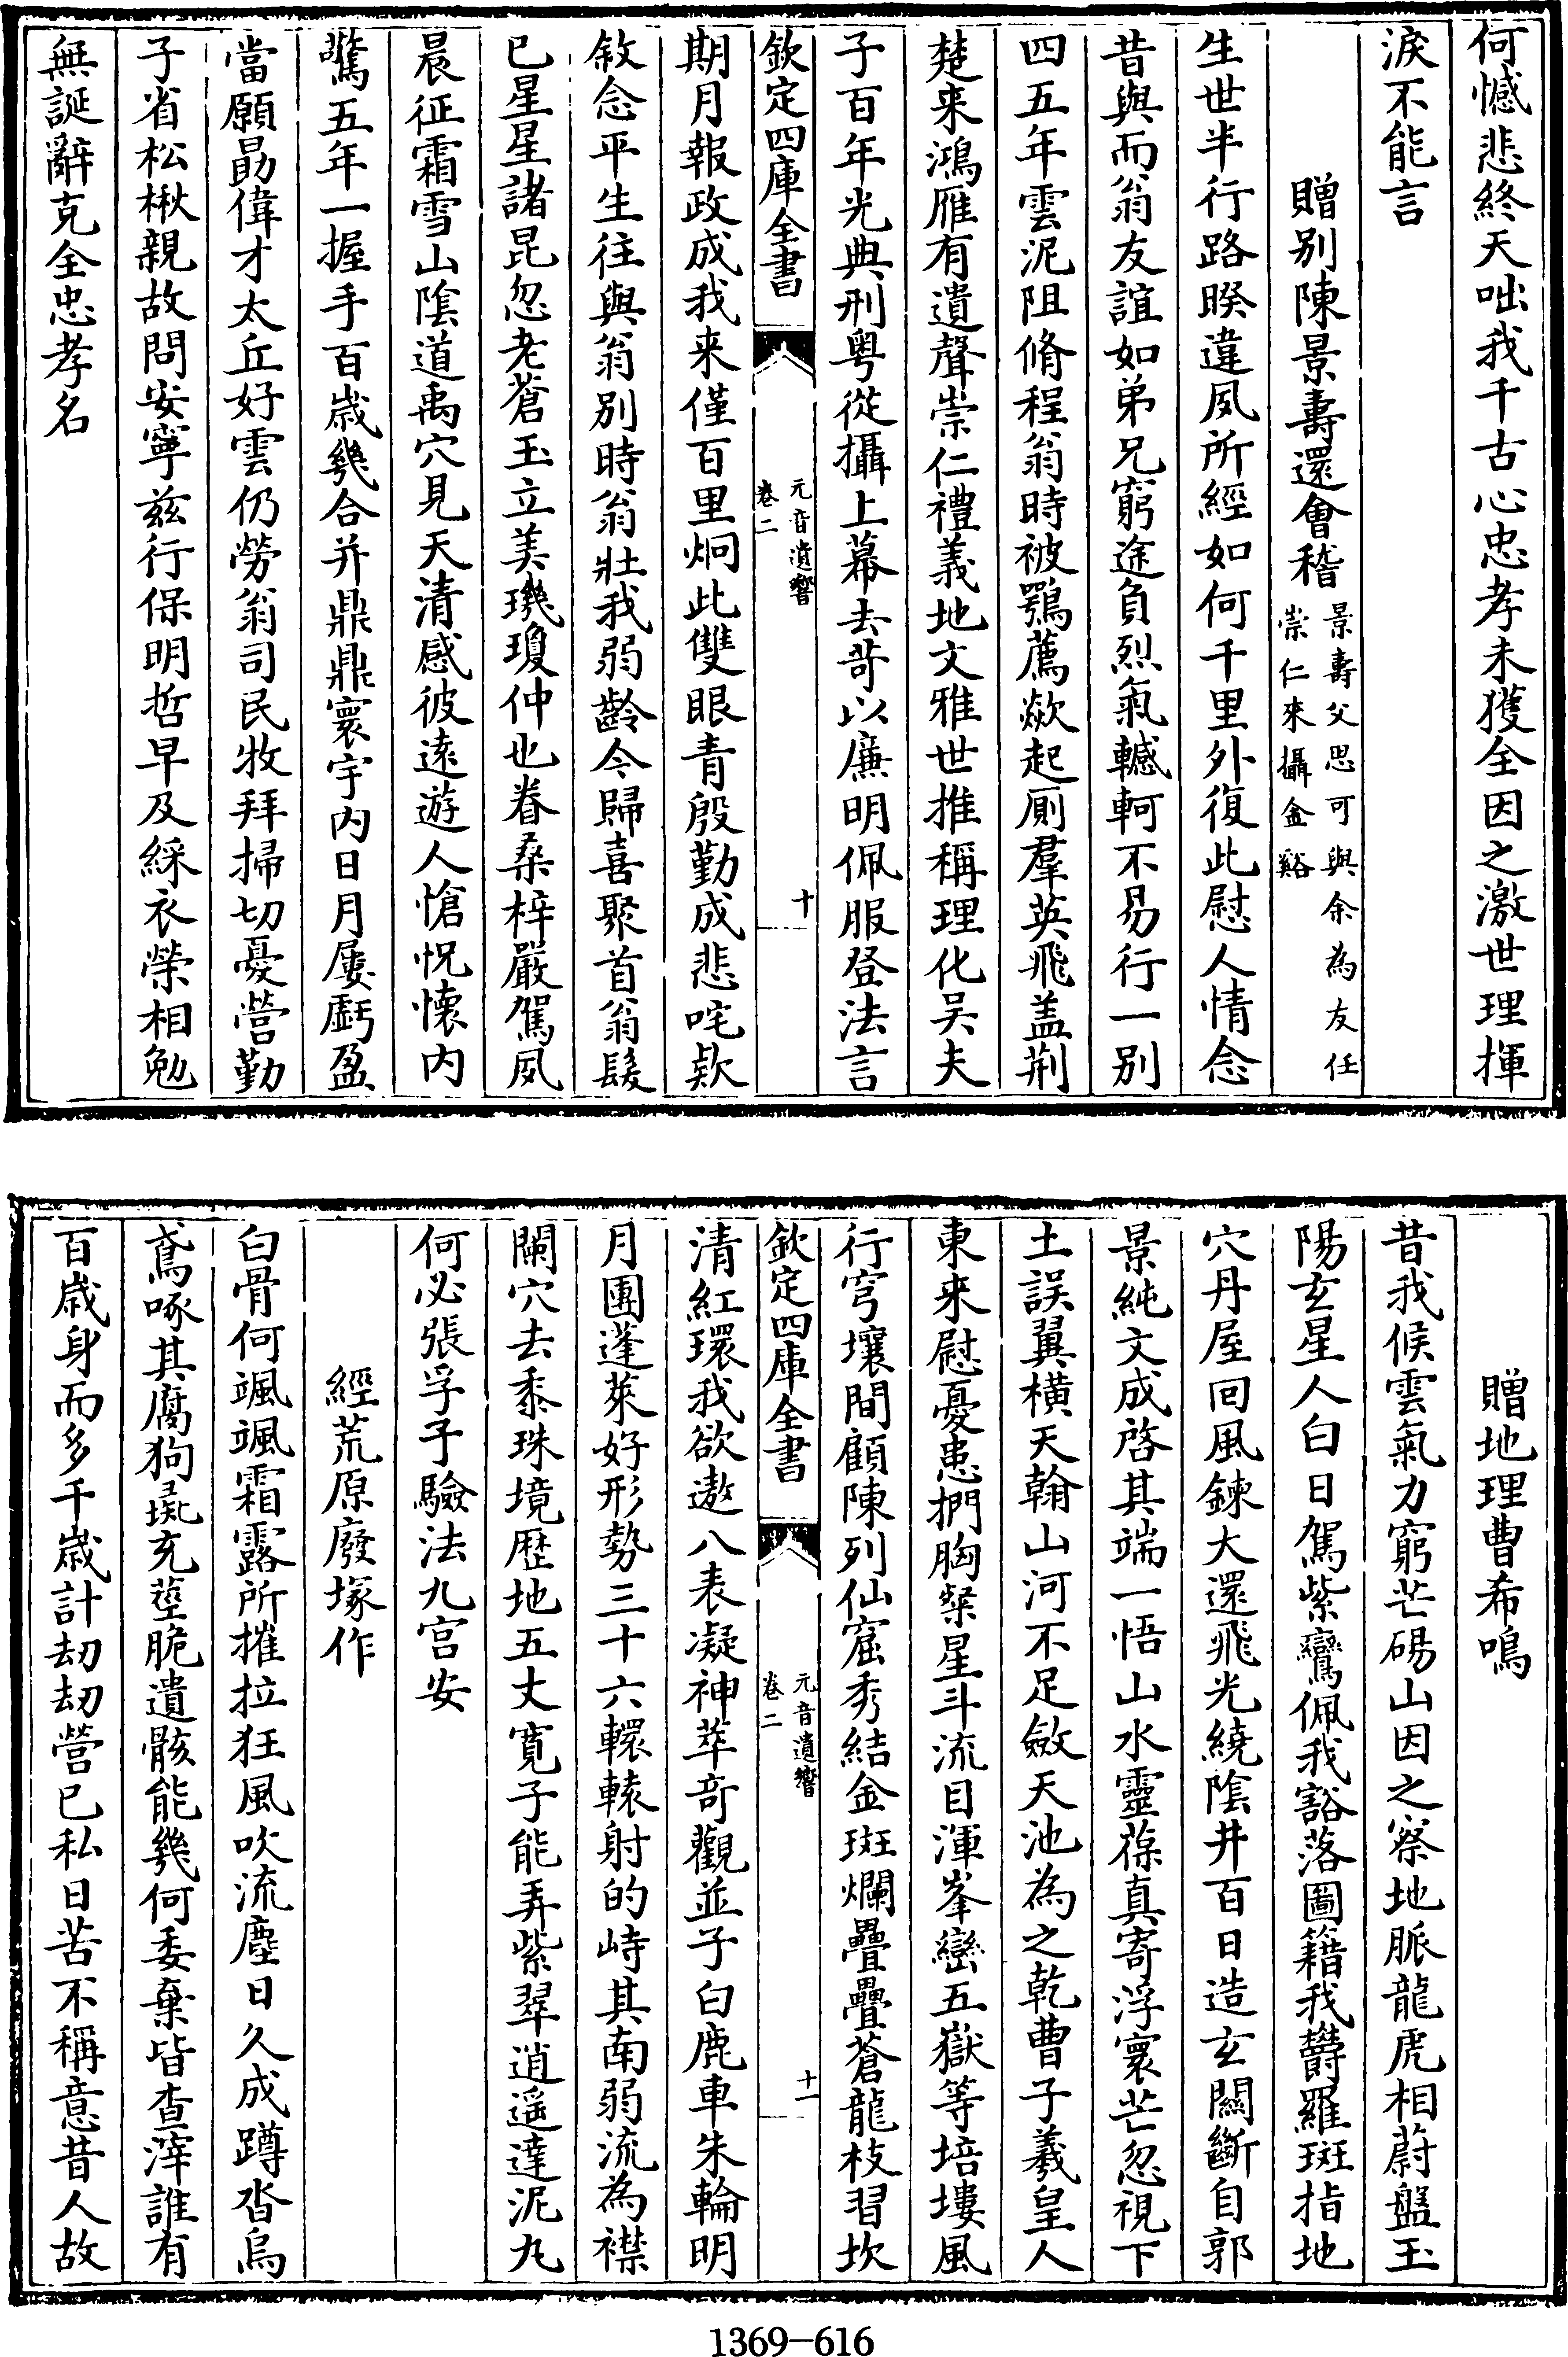 何憾悲終天咄我千古心忠孝未獲全因之激世理揮
淚不能言
贈别陳景壽還會稽景壽父思可與余為友任
崇仁來攝金谿
生世半行路睽違夙所經如何千里外復此慰人情念
昔與而翁友誼如弟兄窮途負烈氣轗軻不易行一别
四五年雲泥阻脩程翁時被鶚薦歘起厠羣英飛盖荆
楚来鴻雁有遺聲崇仁禮義地文雅世推稱理化吴夫
子百年光典刑粤從攝上幕去苛以廉明佩服登法言
欽定四庫全書
元音遺響
卷二
十
期月報政成我来僅百里炯此雙眼青殷勤成悲咤欵
敘念平生往與翁別時翁壯我弱齡今歸喜聚首翁髮
已星星諸昆忽老蒼玉立美璣瓊仲也眷桑梓嚴駕夙
晨征霜雪山陰道禹穴見天清感彼逺遊人愴怳懷内
驚五年一握手百歲幾合并鼎鼎寰宇内日月屢虧盈
當願勗偉才太丘好雲仍勞翁司民牧拜掃切憂營勤
子省松楸親故問安寧兹行保明哲早及綵衣榮相勉
無誕辭克全忠孝名
贈地理曹希鳴
昔我候雲氣力窮芒碭山因之察地脈龍虎相蔚盤玉
陽玄星人白日駕紫鸞佩我豁落圖籍我欝羅斑指地
穴丹屋回風鍊大還飛光繞陰井百日造玄關斷自郭
景純文成啓其端一悟山水靈葆真寄浮寰芒忽視下
土誤翼横天翰山河不足斂天池為之乾曹子羲皇人
東来慰憂患捫胸粲星斗流目渾峯巒五嶽等培塿風
行穹壤間顧陳列仙窟秀結金斑爛疊疊蒼龍枝習坎
欽定四庫全書
元音遺響
卷二
十一
清紅環我欲遨八表凝神萃竒觀並子白鹿車朱輪明
月團蓬萊好形勢三十六轘轅射的峙其南弱流為襟
闌穴去黍珠境歴地五丈寛子能弄紫翠逍遥達泥丸
何必張孚予驗法九宫安
經荒原廢塚作
白骨何颯颯霜露所摧拉狂風吹流塵日久成蹲沓烏
鳶啄其腐狗彘充薤脆遺骸能幾何委棄皆查滓誰有
百歲身而多千歲計刼刼營已私日苦不稱意昔人故
1369-616